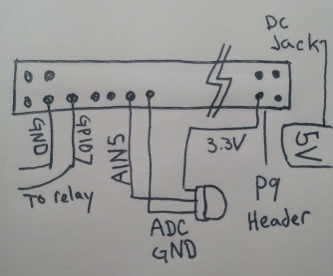 DC
Jack
GND
GPIO7
AIN5
3.3V
5V
To relay
ADC
GND
P9
Header